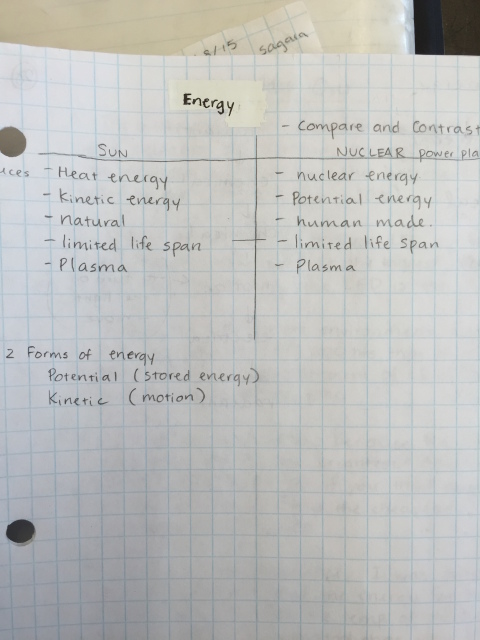 8/15 sagara
Energy
- Compare and Contrast
SUN
NUCLEAR power pla
uces - Heat energy
- Kinetic energy
- natural
- limited life span
- Plasma
- nuclear energy
- Potential energy
- human made.
- limited life span
- Plasma
2 Forms of energy
Potential (stored energy)
Kinetic (motion)